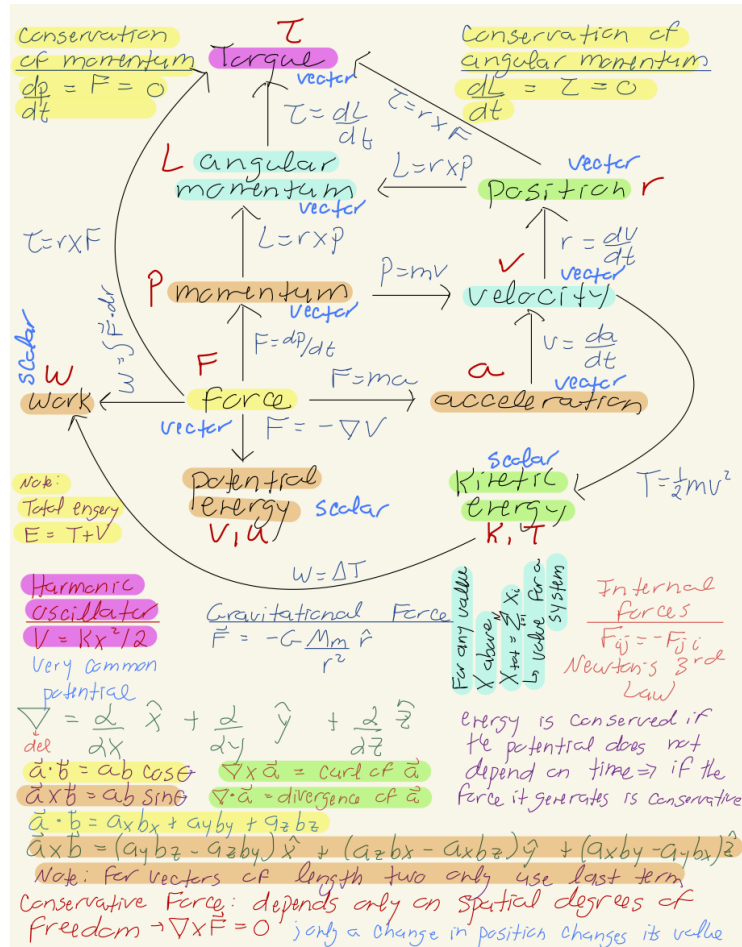 Conservation
of momentum
dp/dt = F = 0
τ
Torque
vector
Conservation of
angular momentum
dL/dt = τ = 0
τ = dL/dt
τ=r×F
L angular
momentum
vector
L=r×p
vector
position r
τ=r×F
L=r×p
r = dv/dt
P momentum
vector
P=mv
v
velocity
vector
W=∫F⃗·dr
F=dp/dt
v = da/dt
scalar
W
work
F
force
vector
F=ma
a
vector
acceleration
F = -∇V
potential
energy
scalar
V, U
scalar
Kinetic
energy
K, T
T=½mv²
Note:
Total engery
E = T+V
W=ΔT
Harmonic
oscillator
V = Kx²/2
very common
potential
Gravitational Force
F⃗ = -G Mm/r² r̂
For any value
X above
Xtot = Σ Xi
↳ value for a
system
Internal
forces
Fij = -Fji
Newton's 3rd
Law
∇ = d/dx x̂ + d/dy ŷ + d/dz ẑ
del
energy is conserved if
the potential does not
depend on time ⇒ if the
force it generates is conservative
a⃗·b⃗ = ab cosθ
∇×a⃗ = curl of a⃗
a⃗×b⃗ = ab sinθ
∇·a⃗ = divergence of a⃗
a⃗·b⃗ = axbx + ayby + azbz
a⃗×b⃗ = (aybz - azby)x̂ + (azbx - axbz)ŷ + (axby - aybx)ẑ
Note: for vectors of length two only use last term
Conservative Force: depends only on spatial degrees of
freedom → ∇×F⃗ = 0 ; only a change in position changes its value